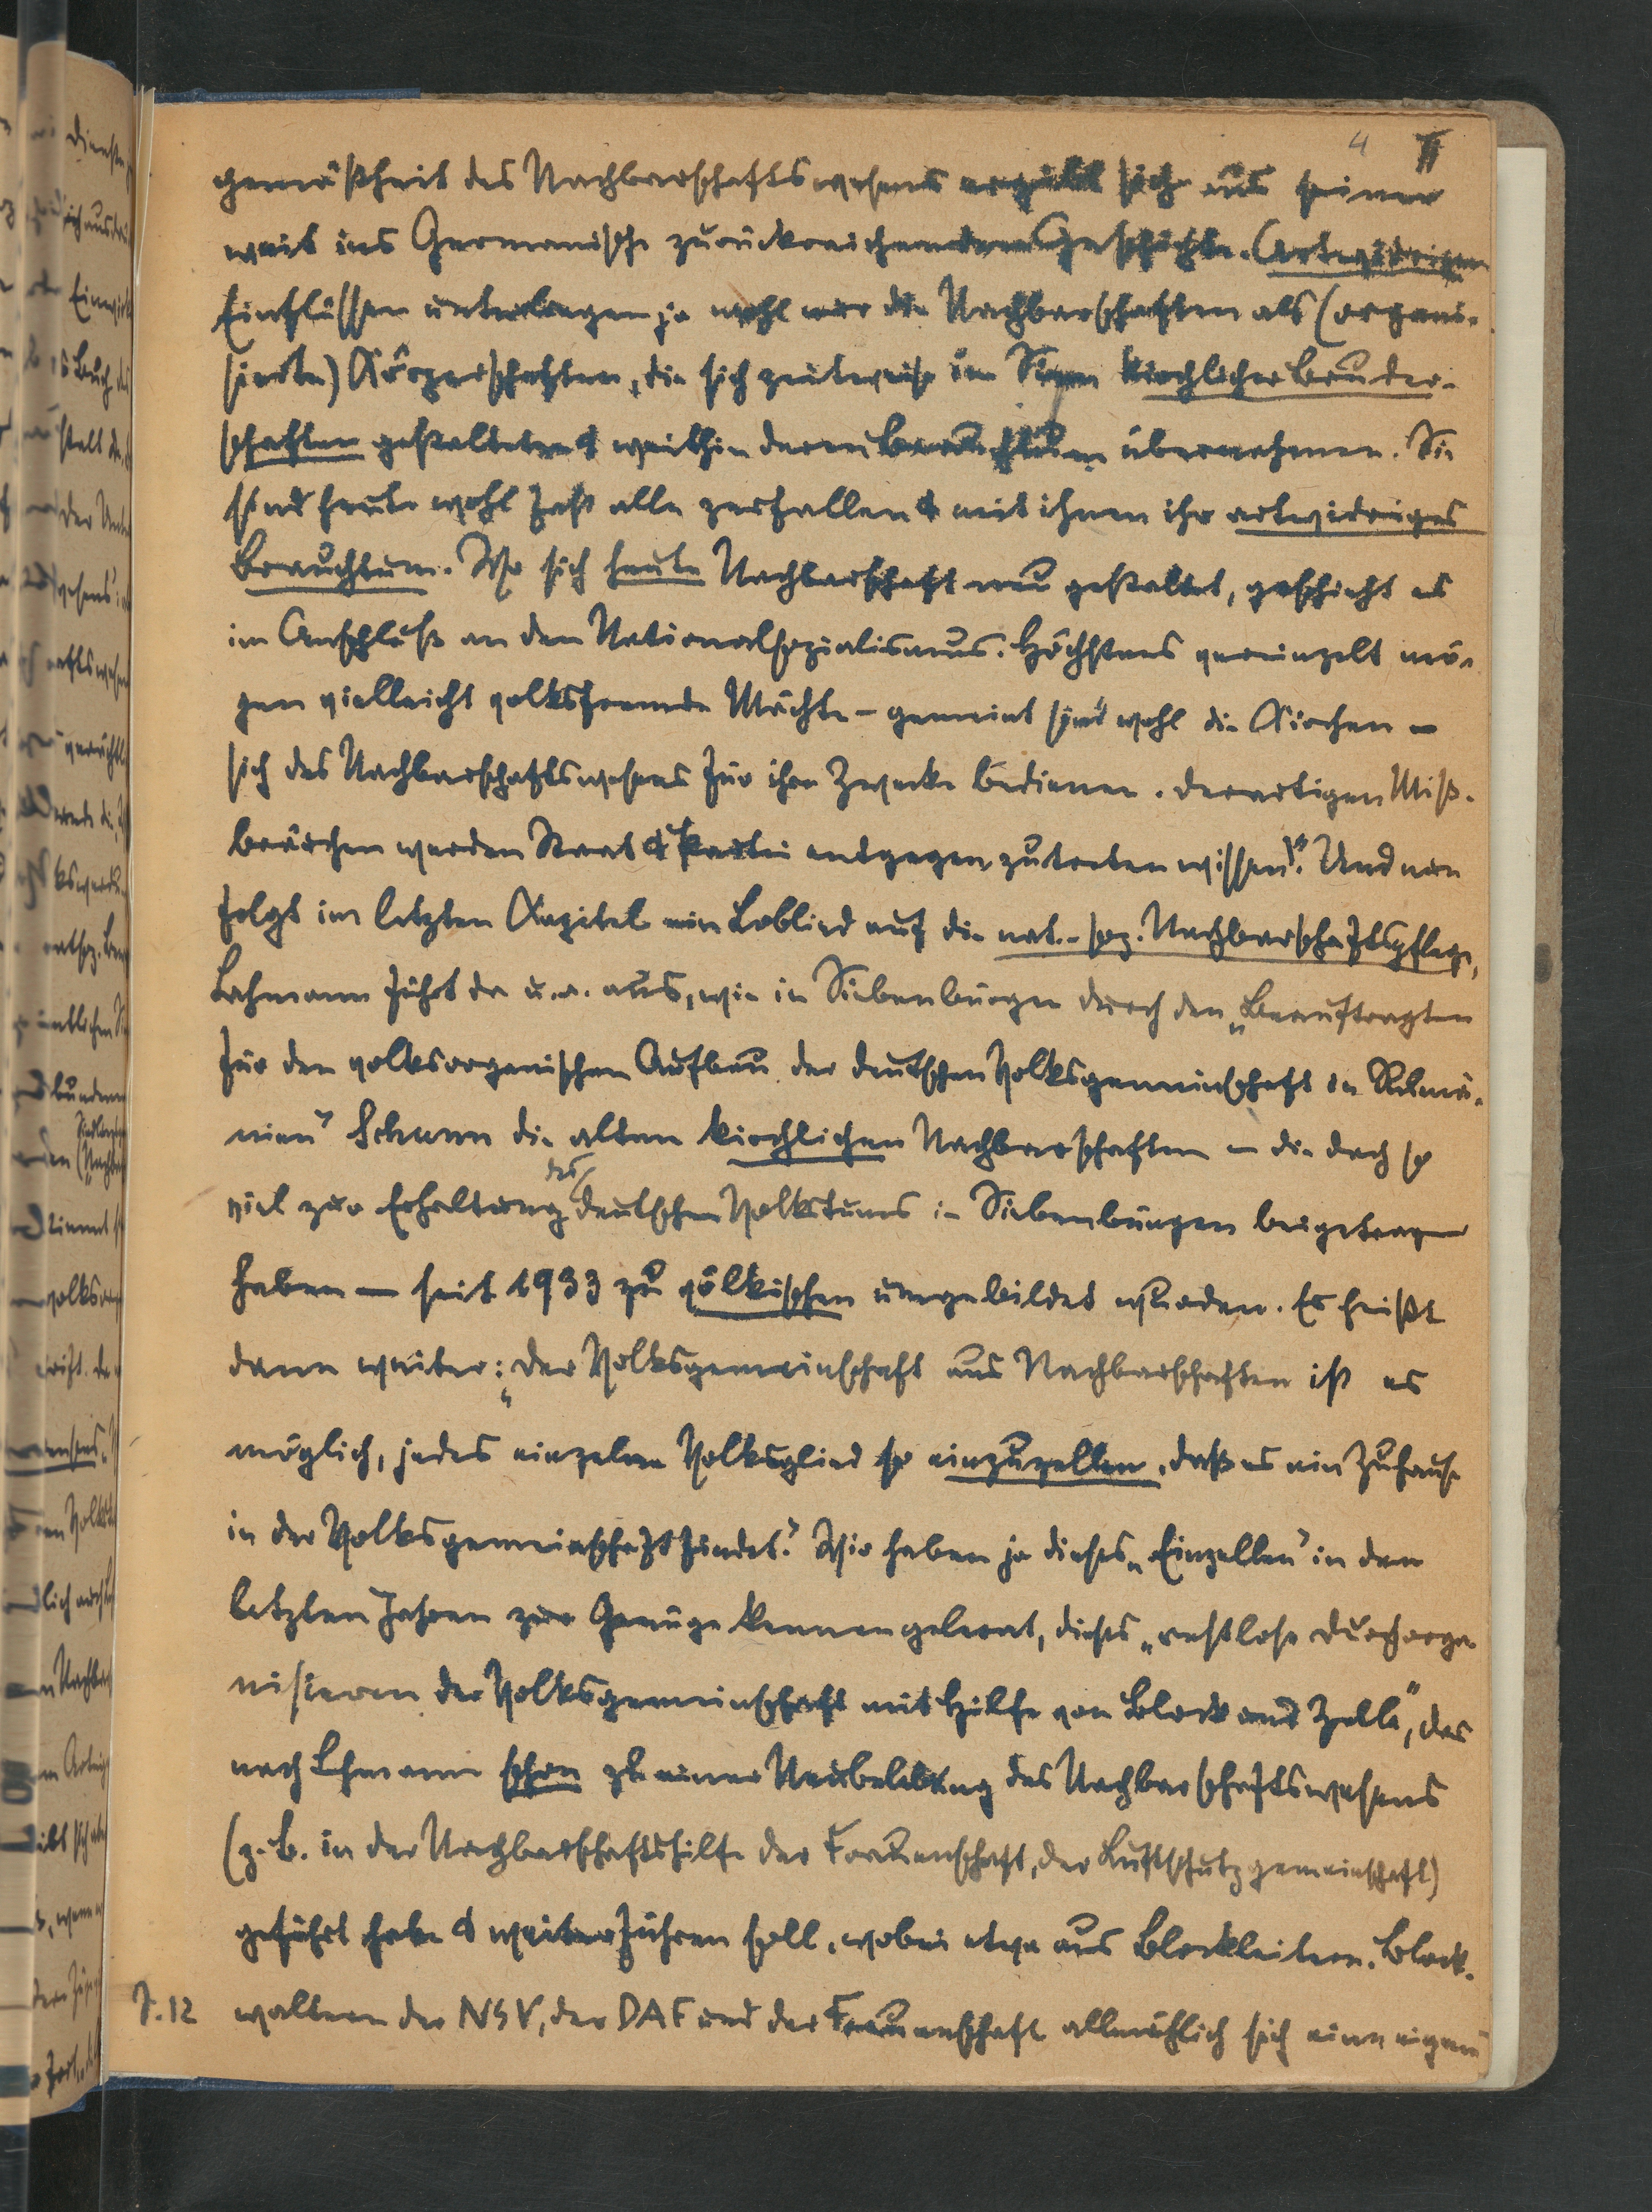 4 II
gemäßheit des Nachbarschaftswesens ergibt sich aus seiner
weit ins Germanische zurückreichenden Geschichte. Artwidrigen
Einflüssen unterlagen ja wohl nur die Nachbarschaften als (organi-
sierte) Körperschaften, die sich zeitweise im Sinn kirchlicher Bruder-
schaften gestalteten & weithin deren Brauchtum übernahmen. Sie
sind heute wohl fast alle zerfallen & mit ihnen ihr artwidriges
Brauchtum. Wo sich heute Nachbarschaft neu gestaltet, geschieht es
im Anschluß an den Nationalsozialismus. Höchstens vereinzelt mö-
gen vielleicht volksfremde Mächte - gemeint sind wohl die Kirchen -
sich des Nachbarschaftswesens für ihre Zwecke bedienen. Derartigen Miß-
bräuchen werden Staat & Partei entgegenzutreten wissen". Und nun
folgt im letzten Kapitel ein Loblied auf die nat.-soz. Nachbarschaftspflege,
Lehmann führt da u. a. aus, wie in Siebenbürgen durch den „Beauftragten
für den volksorganischen Aufbau der deutschen Volksgemeinschaft in Rumä-
nien" Schunn die alten kirchlichen Nachbarschaften - die doch so
viel zur Erhaltung des deutschen Volkstums in Siebenbürgen beigetragen
haben - seit 1933 zu völkischen umgebildet wurden. Es heißt
dann weiter: „Der Volksgemeinschaft aus Nachbarschaften ist es
möglich, jedes einzelne Volksglied so einzuzellen, daß es ein Zuhause
in der Volksgemeinschaft findet." Wir haben ja dieses „Einzellen" in den
letzten Jahren zur Genüge kennengelernt, dieses „restlose Durchorga
nisieren der Volksgemeinschaft mit Hilfe von Block und Zelle", das
nach Lehmann schon zu einer Neubelebung des Nachbarschaftswesens
(z. B. in der Nachbarschaftshilfe der Frauenschaft, der Luftschutzgemeinschaft)
geführt habe & weiter führen soll, wobei etwa aus Blockleitern, Block-
S. 12 waltern der NSV, der DAF und der Frauenschaft allmählich sich eine eigene